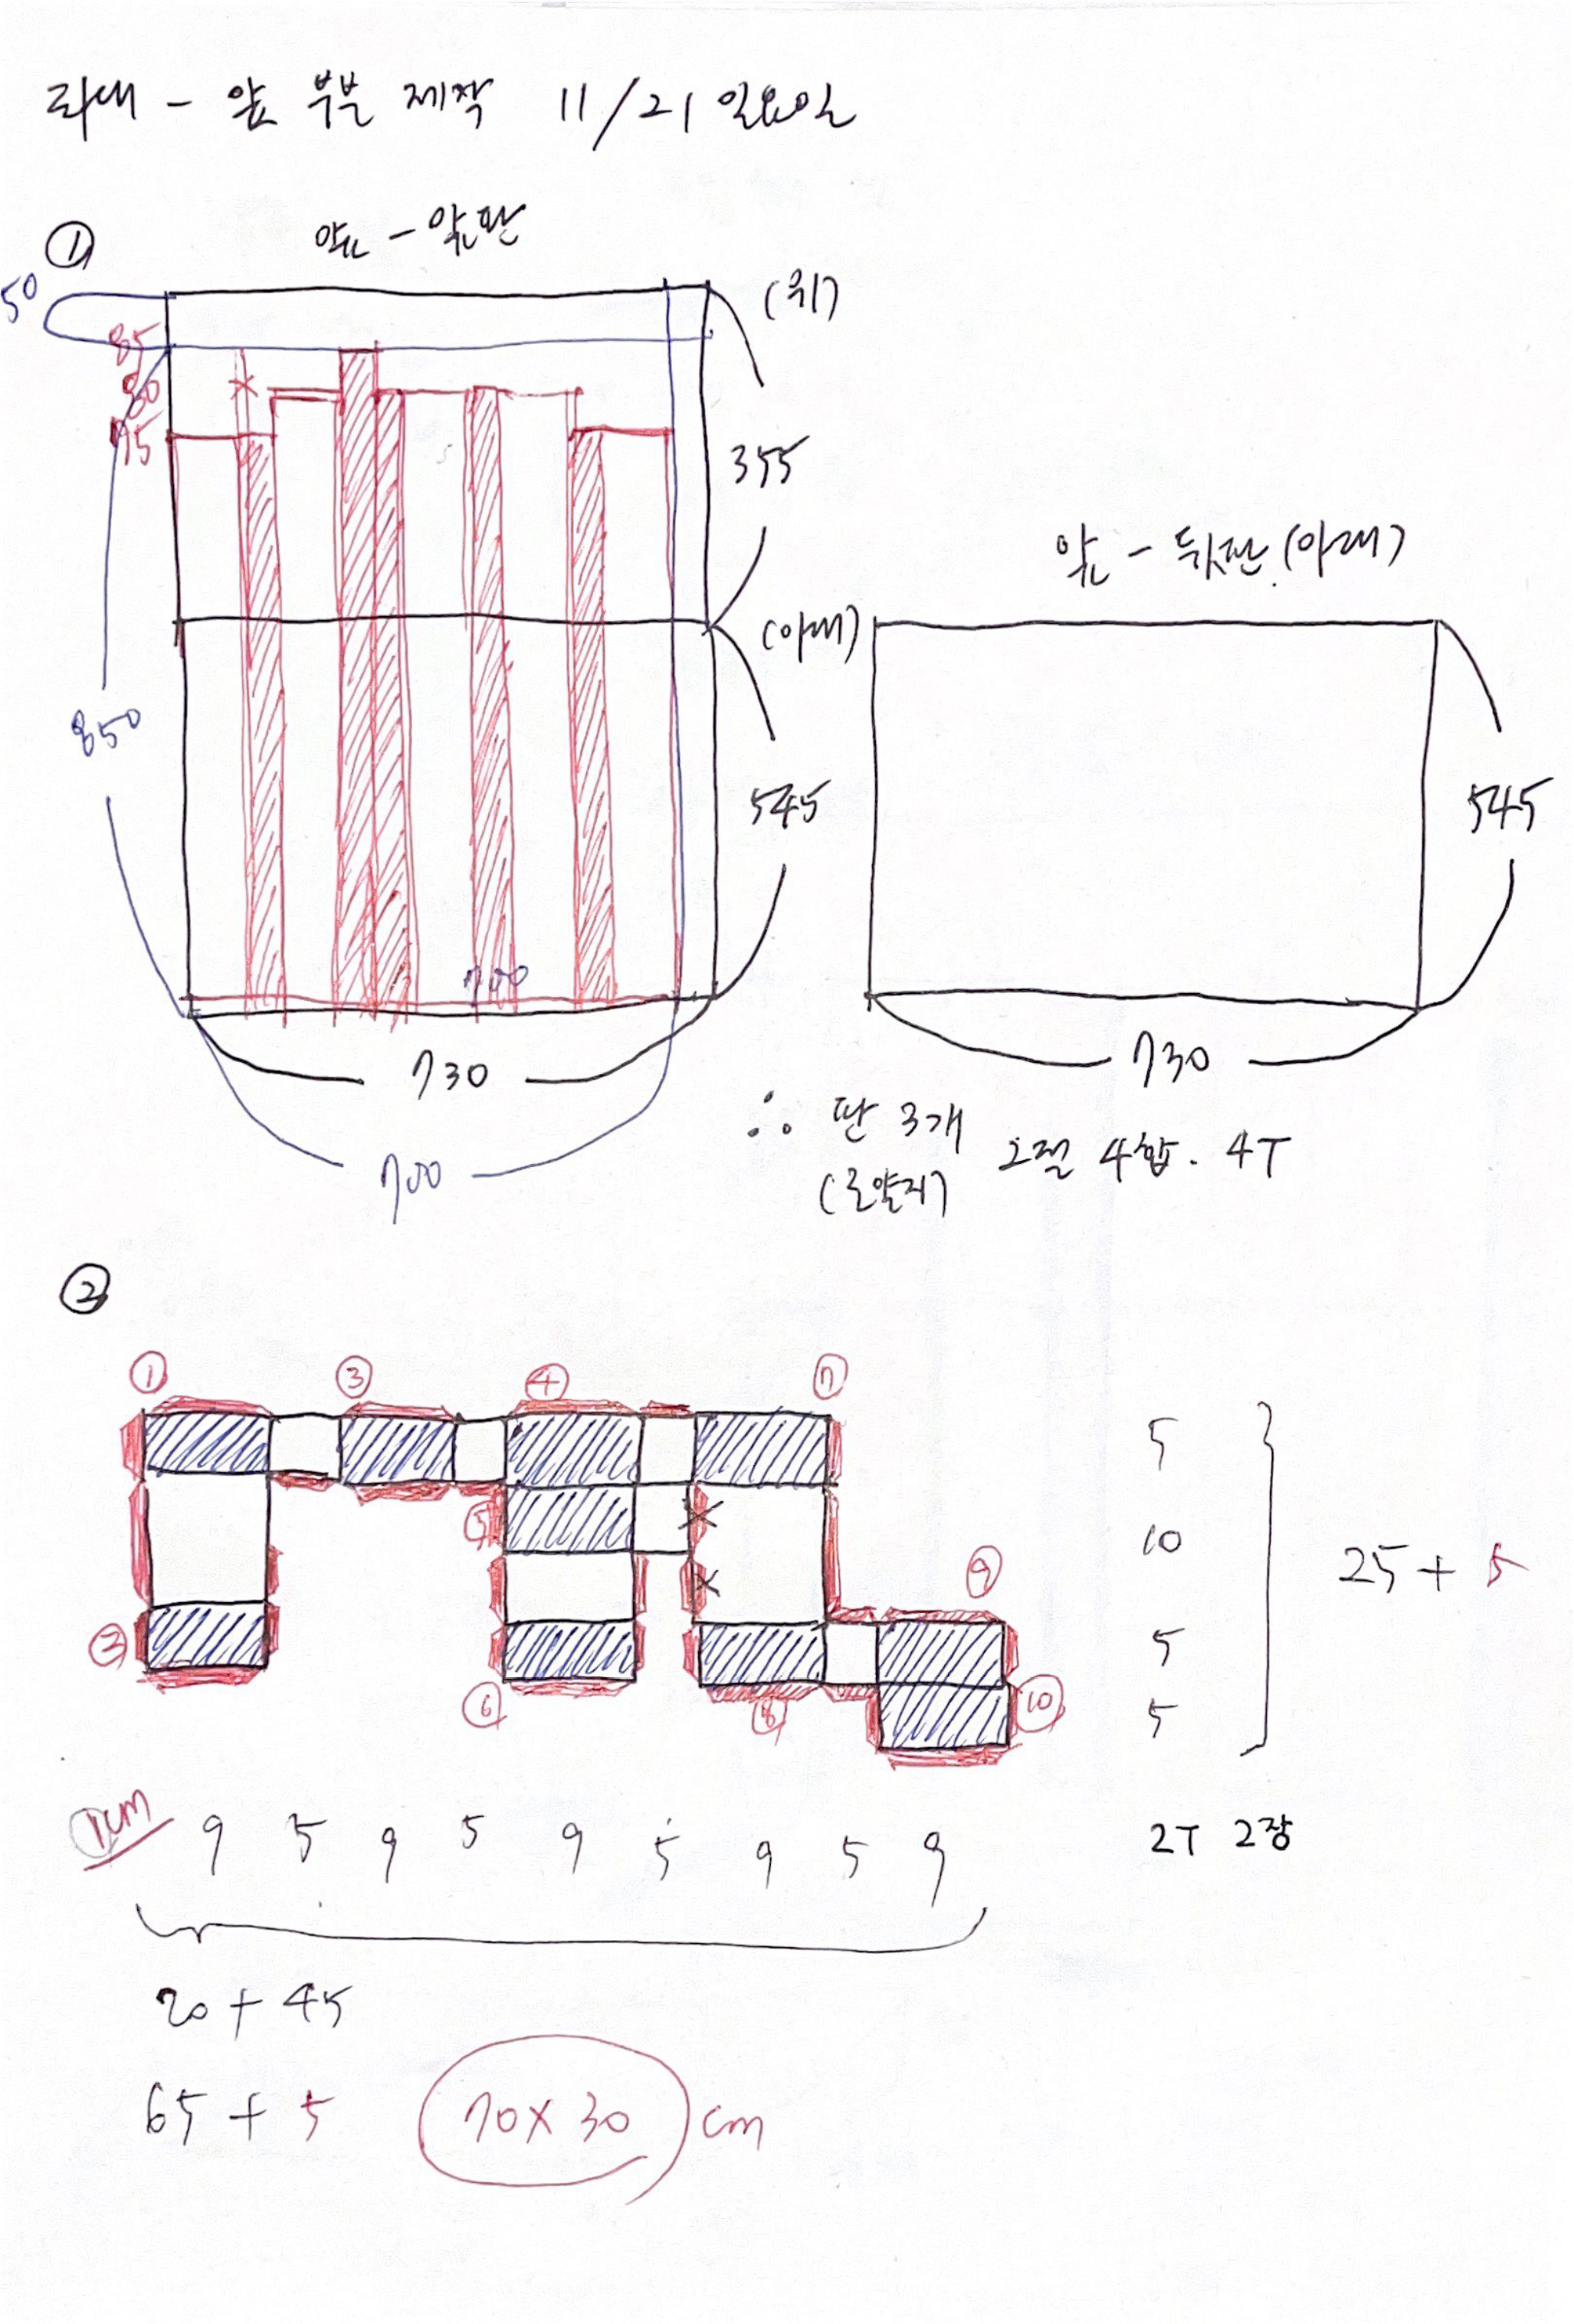 좌대 - 앞 부분 제작 11/21 일요일
①
앞 - 앞판
50
(위)
85
80
75
355
앞 - 뒷판 (아래)
(아래)
850
545
545
700
730
730
∴ 판 3개 2절 4합. 4T
(로얄지)
700
②
① ③ ④ ⑦
5
⑤
10
⑨
25 + 5
②
5
⑥ ⑧ ⑩
5
1cm 9 5 9 5 9 5 9 5 9
2T 2장
20 + 45
65 + 5
70 X 30 cm